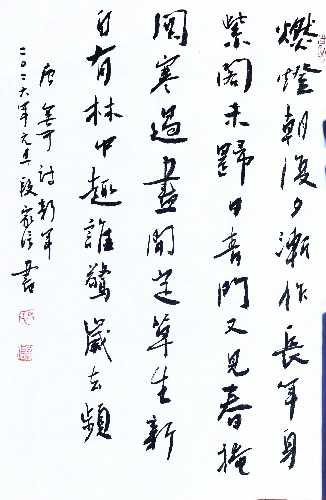 燃燈朝復夕漸作長年身
紫閣未歸日青門又見春掩
關寒過盡開定草生新
自有林中趣誰驚歲去頻
唐無可詩新年
二〇二六年元旦段家書